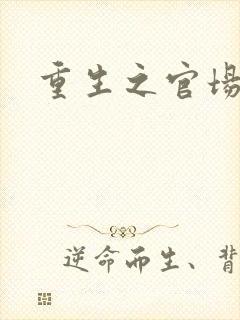 重生之官场
逆命而生、背